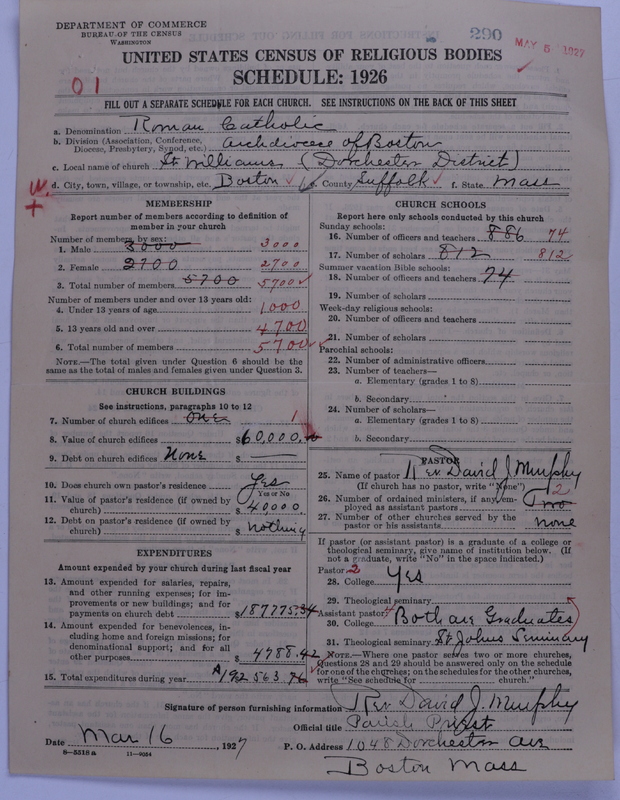 DEPARTMENT OF COMMERCE
BUREAU OF THE CENSUS
WASHINGTON
290
MAY 5 1927
UNITED STATES CENSUS OF RELIGIOUS BODIES
SCHEDULE: 1926
01
FILL OUT A SEPARATE SCHEDULE FOR EACH CHURCH. SEE INSTRUCTIONS ON THE BACK OF THIS SHEET
a. Denomination Roman Catholic
b. Division (Association, Conference, Diocese, Presbytery, Synod, etc.) Archdiocese of Boston
c. Local name of church St Williams (Dorchester District)
d. City, town, village, or township, etc. Boston e. County Suffolk f. State Mass
MEMBERSHIP
Report number of members according to definition of
member in your church
Number of members, by sex:
1. Male 3000 3000
2. Female 2700 2700
3. Total number of members 5700 5700
Number of members under and over 13 years old:
4. Under 13 years of age 1000
5. 13 years old and over 4700
6. Total number of members 5700
NOTE.—The total given under Question 6 should be
the same as the total of males and females given under Question 3.
CHURCH BUILDINGS
See instructions, paragraphs 10 to 12
7. Number of church edifices one 1
8. Value of church edifices $60,000.
9. Debt on church edifices None $
10. Does church own pastor's residence Yes
Yes or No
11. Value of pastor's residence (if owned by
church) $ 40000.
12. Debt on pastor's residence (if owned by
church) $ nothing
EXPENDITURES
Amount expended by your church during last fiscal year
13. Amount expended for salaries, repairs,
and other running expenses; for im-
provements or new buildings; and for
payments on church debt $187775.34
14. Amount expended for benevolences, in-
cluding home and foreign missions; for
denominational support; and for all
other purposes $ 4788.42
15. Total expenditures during year 192563.76
CHURCH SCHOOLS
Report here only schools conducted by this church
Sunday schools:
16. Number of officers and teachers 886 74
17. Number of scholars 812 812
Summer vacation Bible schools:
18. Number of officers and teachers 74
19. Number of scholars
Week-day religious schools:
20. Number of officers and teachers
21. Number of scholars
Parochial schools:
22. Number of administrative officers
23. Number of teachers—
a. Elementary (grades 1 to 8)
b. Secondary
24. Number of scholars—
a. Elementary (grades 1 to 8)
b. Secondary
PASTOR
25. Name of pastor Rev David J Murphy
(If church has no pastor, write "None")
26. Number of ordained ministers, if any, em-
ployed as assistant pastors Two 2
27. Number of other churches served by the
pastor or his assistants none
If pastor (or assistant pastor) is a graduate of a college or
theological seminary, give name of institution below. (If
not a graduate, write "No" in the space indicated.)
Pastor: 2
28. College Yes
29. Theological seminary
Assistant pastor:
30. College Both are Graduates
31. Theological seminary St Johns Seminary
NOTE.—Where one pastor serves two or more churches,
Questions 28 and 29 should be answered only on the schedule
for one of the churches; on the schedules for the other churches,
write "See schedule for church."
Signature of person furnishing information Rev David J. Murphy
Official title Parish Priest
Date Mar 16, 1927
P. O. Address 1048 Dorchester Ave
Boston Mass
8—5518 a 11—9264